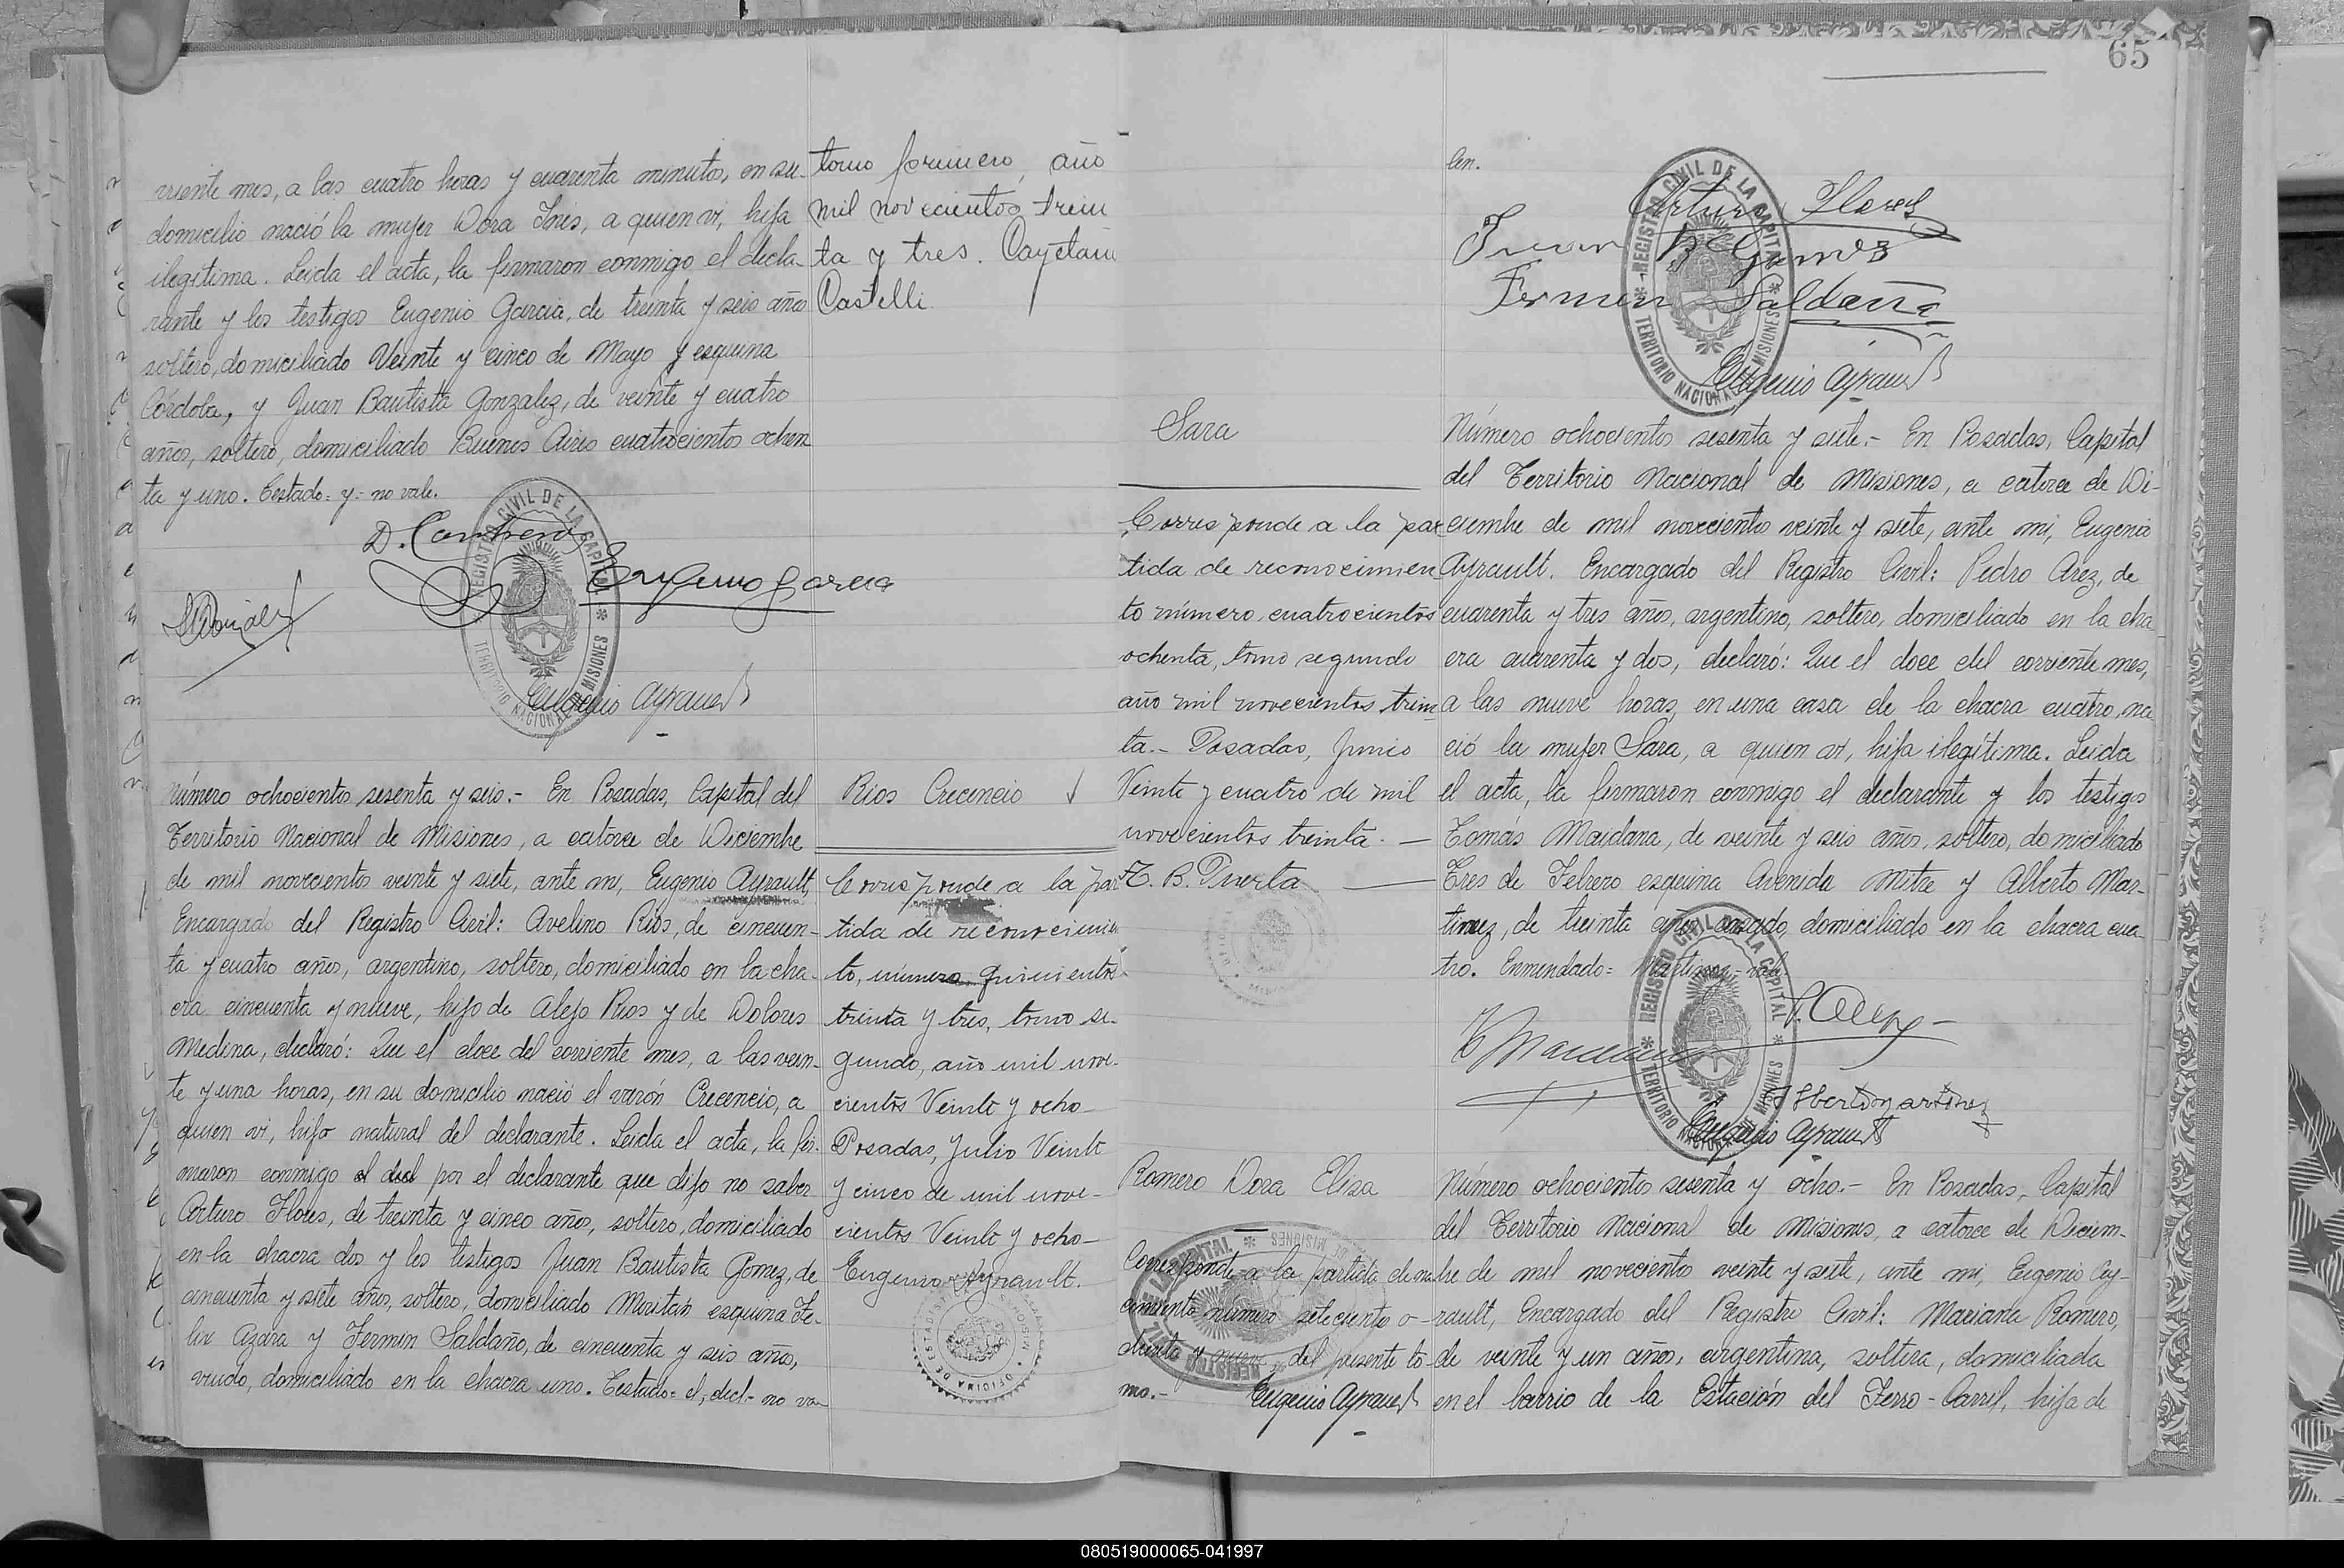 rriente mes, a las cuatro horas y cuarenta minutos, en su
domicilio nació la mujer Dora Inés, a quien vi, hija
ilegitima. Leida el acta, la firmaron conmigo el decla-
rante y los testigos Eugenio Garcia, de treinta y seis años
soltero, domiciliado Veinte y cinco de Mayo y esquina
Córdoba, y Juan Bautista Gonzalez, de veinte y cuatro
años, soltero, domiciliado Buenos Aires cuatrocientos ochen
ta y uno. Testado= y= no vale.
tomo primero, año
mil novecientos trein
ta y tres. Cayetan
Castelli
D. Contreras
Eugenio Garcia
Eugenio Ayrault
REGISTRO CIVIL DE LA CAPITAL
TERRITORIO NACIONAL DE MISIONES
Número ochocientos sesenta y seis.- En Posadas, Capital del
Territorio Nacional de Misiones, a catorce de Diciembre
de mil novecientos veinte y siete, ante mi, Eugenio Ayrault,
Encargado del Registro Civil: Avelino Rios, de cincuen-
ta y cuatro años, argentino, soltero, domiciliado en la cha-
cra cincuenta y nueve, hijo de Alejo Rios y de Dolores
Medina, declaró: Que el doce del corriente mes, a las vein-
te y una horas, en su domicilio nació el varón Crecencio, a
quien vi, hijo natural del declarante. Leida el acta, la fir-
maron conmigo el decl por el declarante que dijo no saber
Arturo Flores, de treinta y cinco años, soltero, domiciliado
en la chacra dos y los testigos Juan Bautista Gomez, de
cincuenta y siete años, soltero, domiciliado Moritan esquina Fe-
lix Azara y Fermin Saldaño, de cincuenta y seis años,
viudo, domiciliado en la chacra uno. Testado= el, decl= no va-
Rios Crecencio
Corresponde a la par
tida de reconocimien
to, número quinientos
treinta y tres, tomo se-
gundo, año mil nove-
cientos Veinte y ocho-
Posadas, Julio Veinte
y cinco de mil nove-
cientos Veinte y ocho-
Eugenio Ayrault.
65
len.
Arturo Flores
Juan B Gomez
Fermin Saldaña
Eugenio Ayrault
REGISTRO CIVIL DE LA CAPITAL
TERRITORIO NACIONAL DE MISIONES
Sara
Corresponde a la par
tida de reconocimien
to número cuatrocientos
ochenta, tomo segundo
año mil novecientos trein
ta.- Posadas, Junio
Veinte y cuatro de mil
novecientos treinta. —
Z. B. Puerta
Número ochocientos sesenta y siete.- En Posadas, Capital
del Territorio Nacional de Misiones, a catorce de Di-
ciembre de mil novecientos veinte y siete, ante mi, Eugenio
Ayrault. Encargado del Registro Civil: Pedro Arez, de
cuarenta y tres años, argentino, soltero, domiciliado en la cha
cra cuarenta y dos, declaró: Que el doce del corriente mes,
a las nueve horas, en una casa de la chacra cuatro, na
ció la mujer Sara, a quien vi, hija ilegítima. Leida
el acta, la firmaron conmigo el declarante y los testigos
Tomás Maidana, de veinte y seis años, soltero, domiciliado
Tres de Febrero esquina Avenida Mitre y Alberto Mar-
tinez, de treinta años, casado, domiciliado en la chacra cua
tro. Enmendado= Martinez= vale.
Alberto Martinez
Eugenio Ayrault
REGISTRO CIVIL DE LA CAPITAL
TERRITORIO NACIONAL DE MISIONES
Romero Dora Elisa
Corresponde a la partida de na
cimiento número setecientos o-
chenta y nueve, del presente to-
mo.-
Eugenio Ayrault
Número ochocientos sesenta y ocho.- En Posadas, Capital
del Territorio Nacional de Misiones, a catorce de Diciem-
bre de mil novecientos veinte y siete, ante mi, Eugenio Ay-
rault, Encargado del Registro Civil: Mariana Romero,
de veinte y un años, argentina, soltera, domiciliada
en el barrio de la Estación del Ferro-Carril, hija de
080519000065-041997